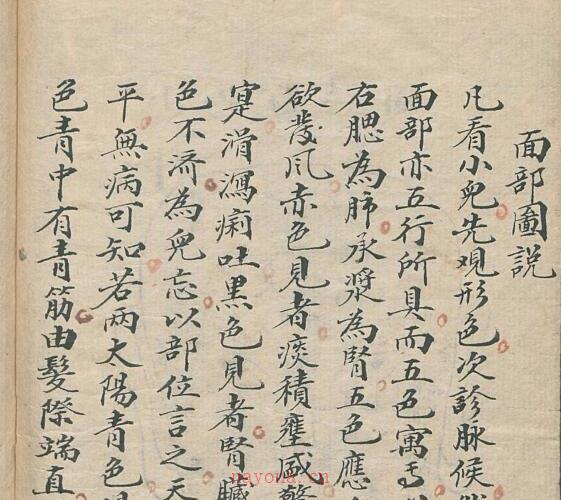 面部圖說
凡看小兒先观形色次診脉候
面部亦五行所具而五色寓焉
右腮為肺承漿為腎五色應
欲發風赤色見者痰積壅盛驚
寔滑瀉痢吐黑色見者腎臟
色不済為兒忘以部位言之天
平無病可知若兩太陽青色
色青中有青筋由髮際端直
nayona.cn